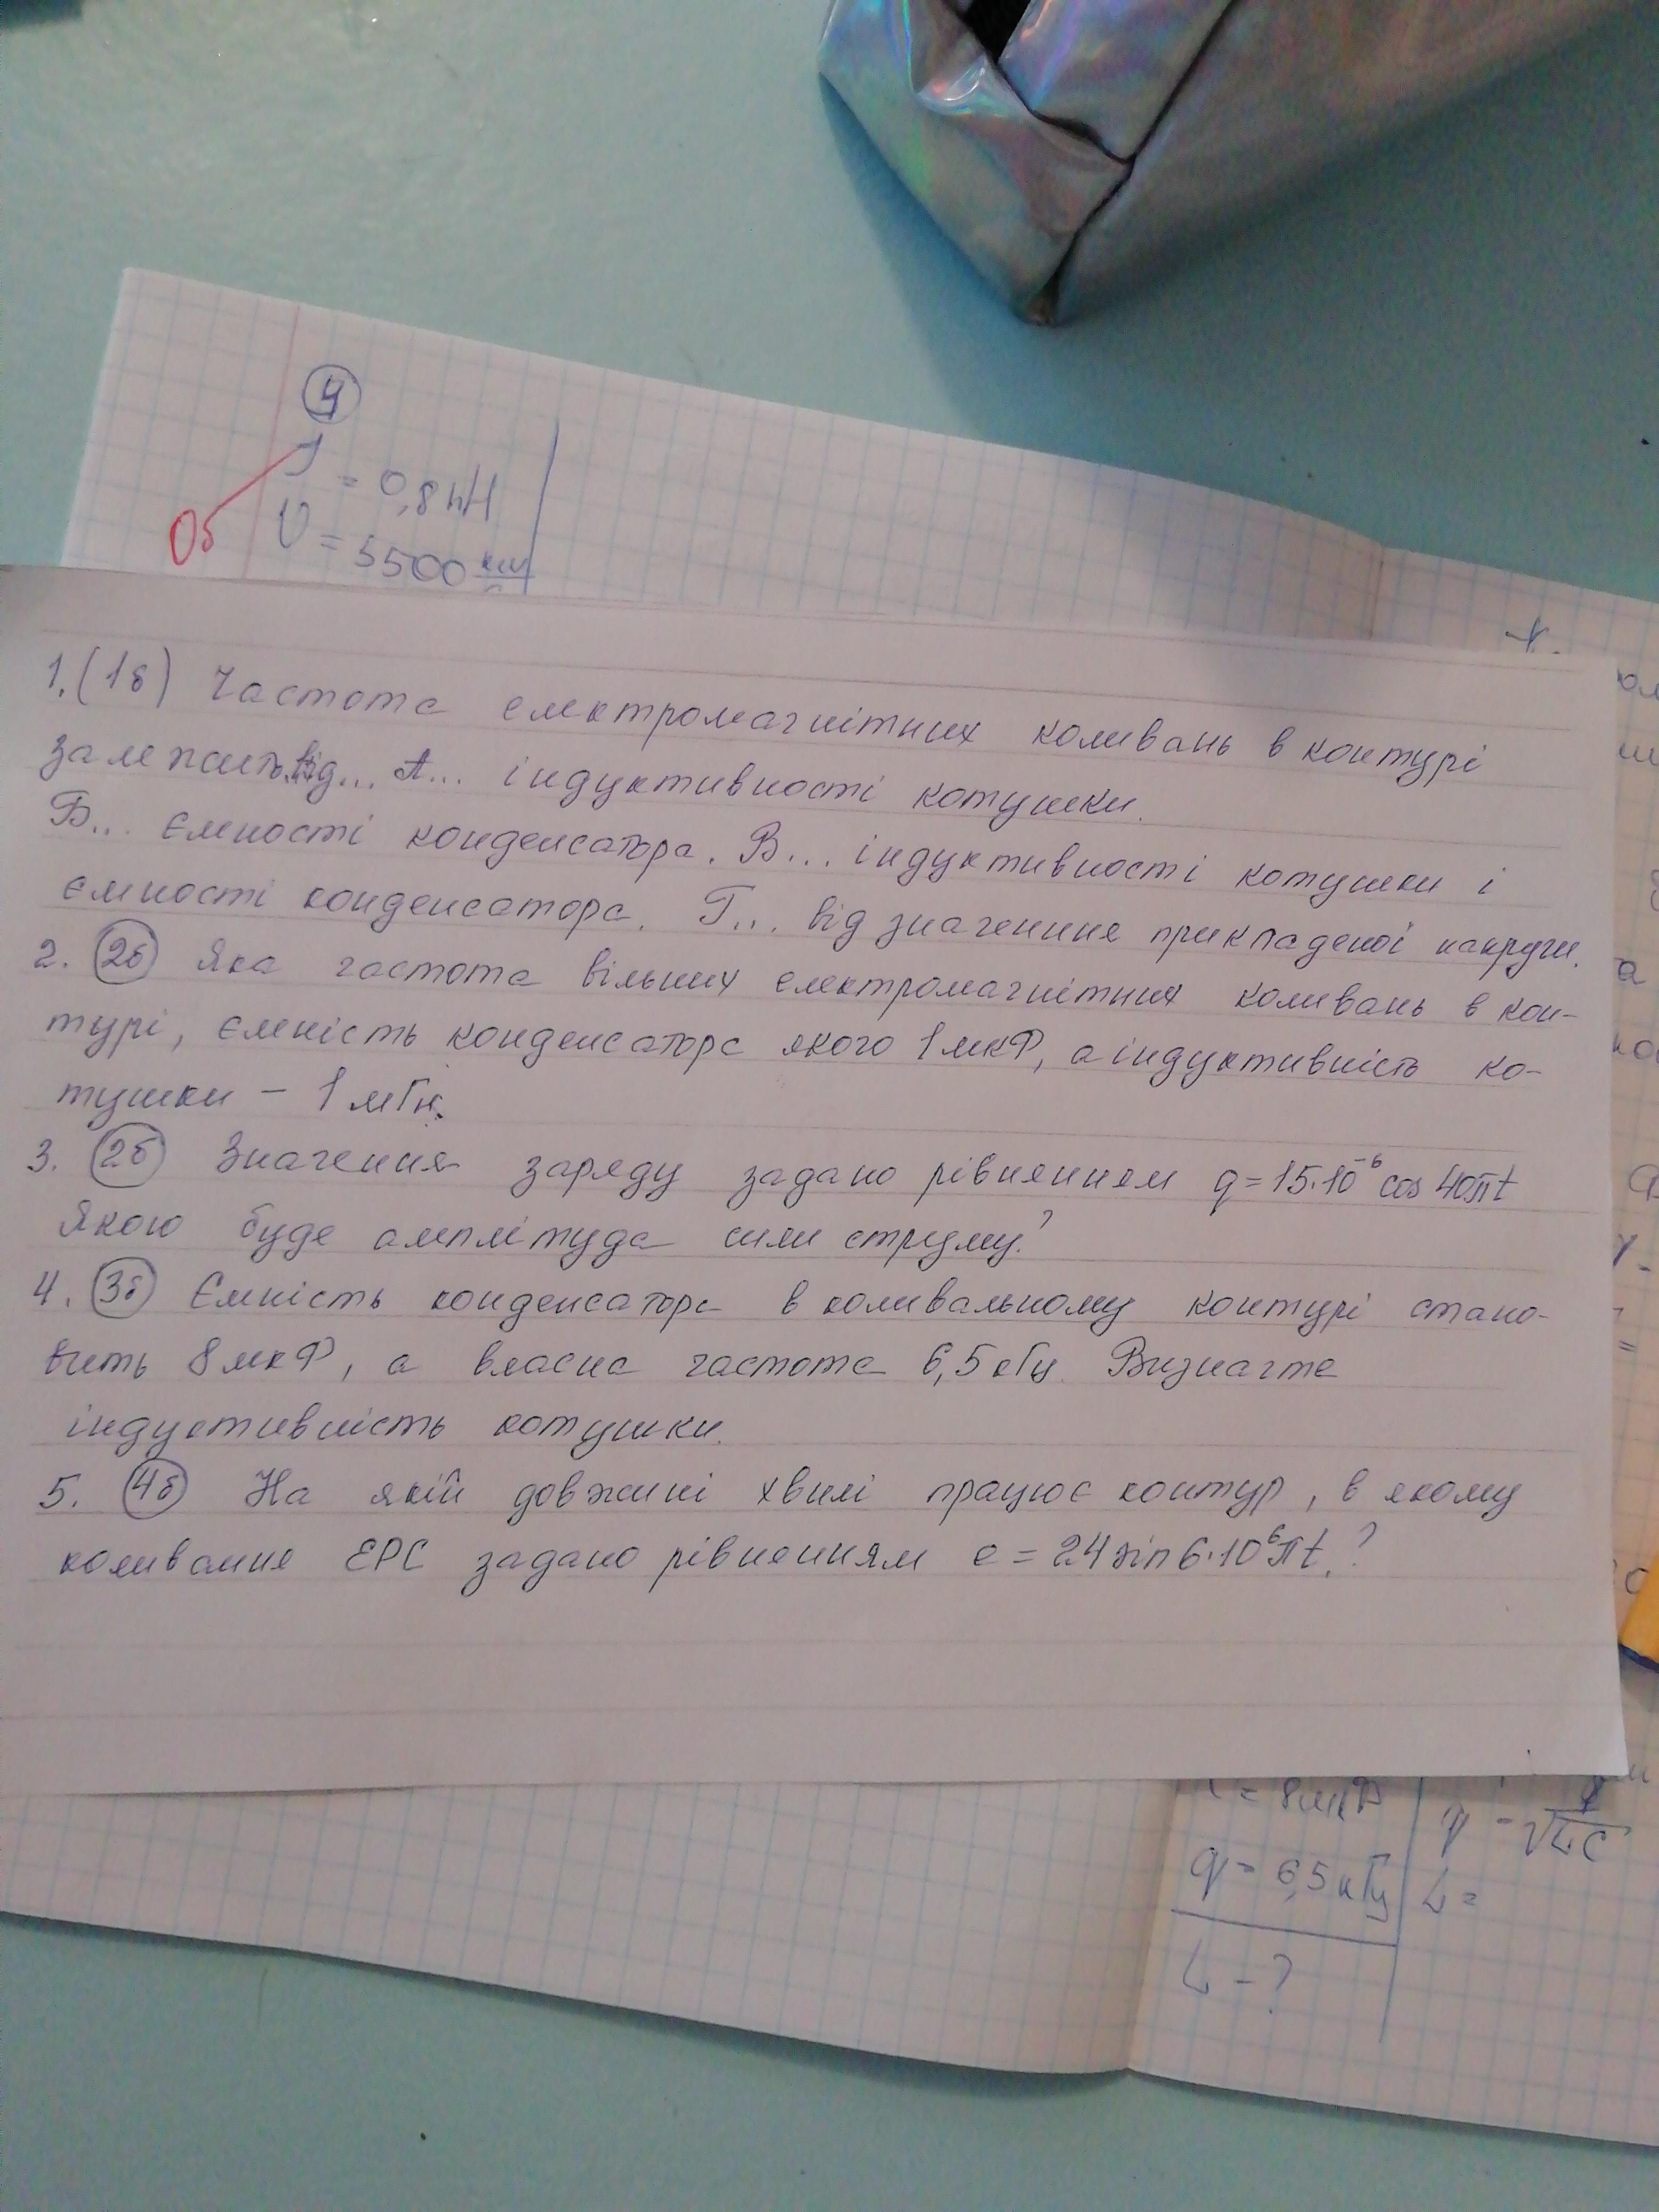 4
= 0,8 мН
υ = 5500 км
Об
1. (1б) Частота електромагнітних коливань в контурі
залежить від... А... індуктивності котушки.
Б... ємності конденсатора. В... індуктивності котушки і
ємності конденсатора. Г... від значення прикладеної напруги.
2. (2б) Яка частота вільних електромагнітних коливань в кон-
турі, ємність конденсатора якого 1 мкФ, а індуктивність ко-
тушки – 1 мГн.
3. (2б) Значення заряду задано рівнянням q = 15·10⁻⁶ cos 40πt
Якою буде амплітуда сили струму?
4. (3б) Ємність конденсатора в коливальному контурі стано-
вить 8 мкФ, а власна частота 6,5 кГц. Визначте
індуктивність котушки.
5. (4б) На якій довжині хвилі працює контур, в якому
коливання ЕРС задано рівнянням e = 24 sin 6·10⁶πt.?
= 8 мкФ
= 6,5 кГц
L =
L – ?